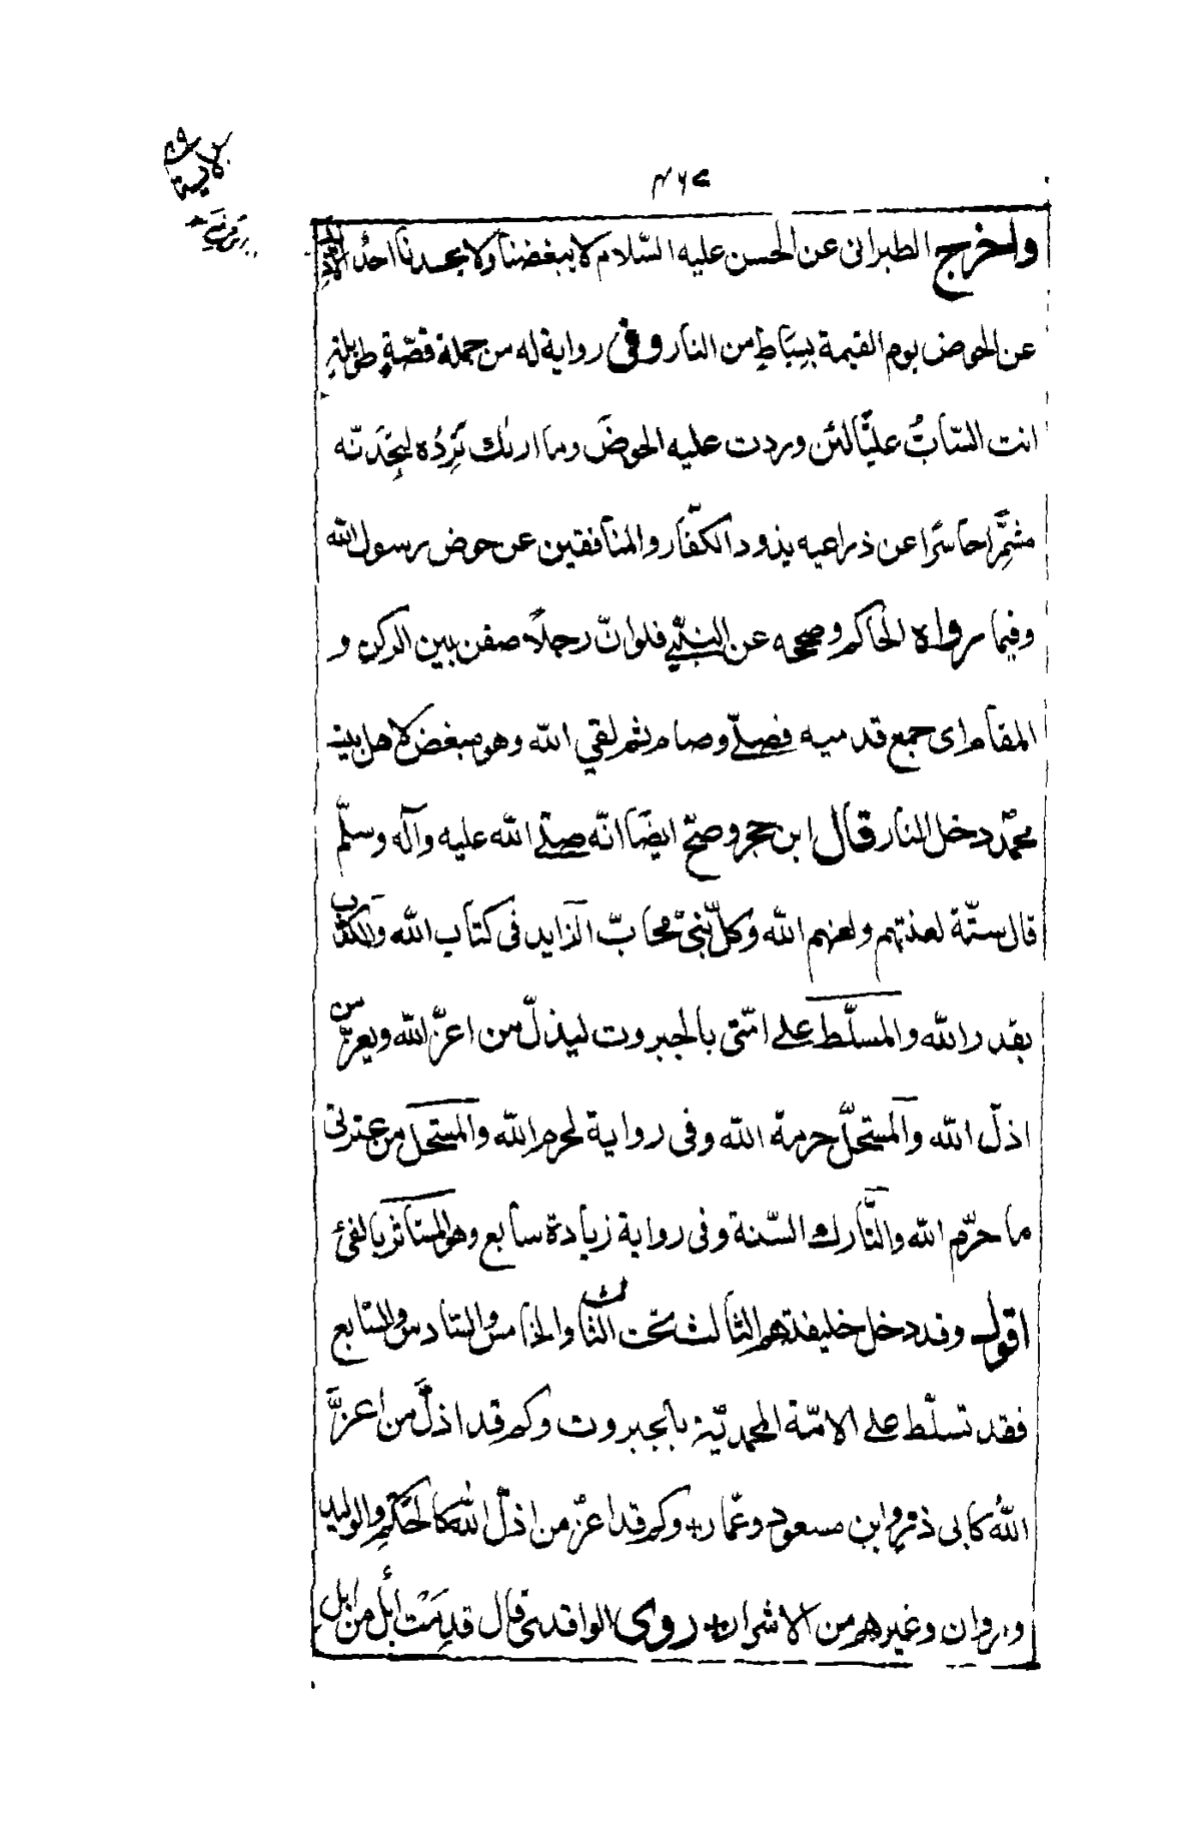 ٤٦٥
واخرج الطبرانى عن الحسن عليه السّلام لا يبغضنا ولا يحسدنا احدٌ الّا
عن الحوض يوم القيمة بسِيَاطٍ من النار وفى رواية له من جملة قصّةٍ طويلة
انت السّابُّ عليًّا لئن وردت عليه الحوضَ وما اراك تَرِدُه لتجِدَنّه
مشمِّرًا حاسرًا عن ذراعيه يذود الكفّار والمنافقين عن حوض رسول الله
وفيما رواه الحاكم وصححه عن النبىّ فلو انّ رجلاً صفن بين الركن و
المقام اى جمع قدميه فصلّى وصام ثم لقى الله وهو مبغض لاهل بيت
محمّدٍ دخل النار قال ابن حجر وصحّ ايضًا انّه صلّى الله عليه وآله وسلّم
قال ستّة لعنتهم ولعنهم الله وكلّ نبىّ مجابّ الزايد فى كتاب الله والمكذب
بقدر الله والمسلّط على امّتى بالجبروت ليذلّ من اعزّ الله ويعزّ من
اذلّ الله والمستحلّ حرمة الله وفى رواية لحرم الله والمستحل من عترتى
ما حرّم الله والتَّارك السّنة وفى رواية زيادة سابع وهو المستاثر بالفئ
اقول وقد دخل خليفتهم الثالث تحت الثالث والخامس والسّادس والسّابع
فقد تسلّط على الامّة المحمديّة بالجبروت وكم قد اذلَّ من اعزَّ
اللهُ كابى ذرٍ وابن مسعود وعمّار وكم قد اعزّ من اذلّ الله كالحَكَمِ والوليد
ومروان وغيرهم من الاشرار روى الواقدى قال قدِمَت ابلٌ من ابل